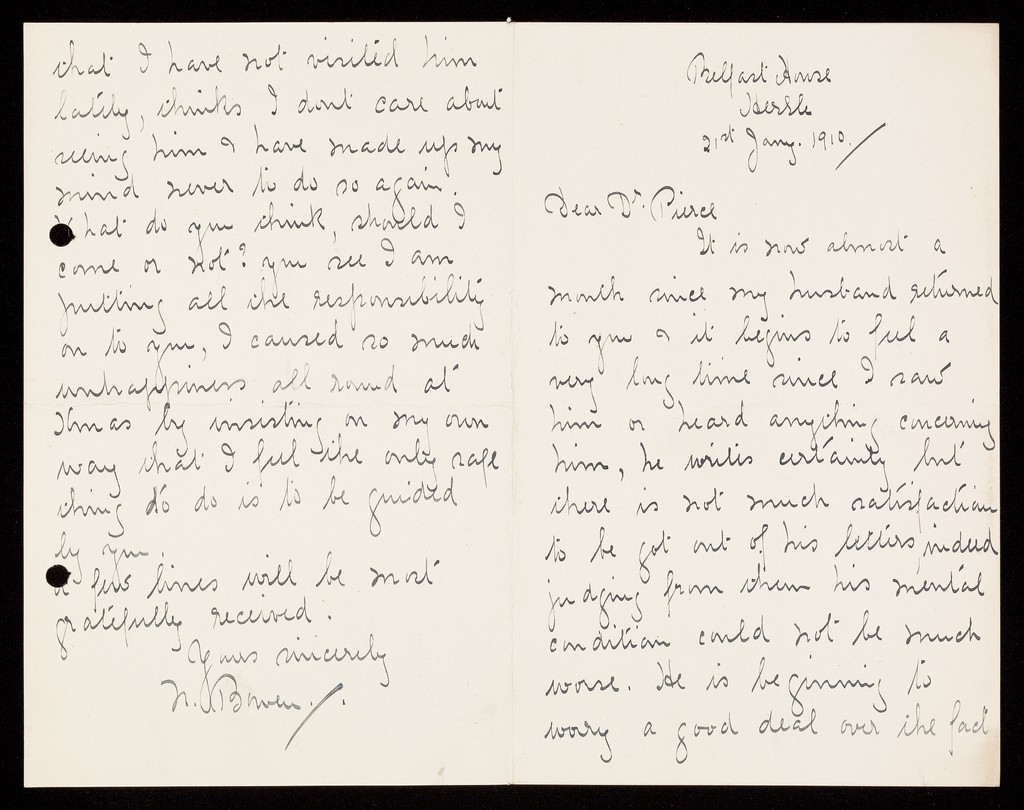 Belfast House
Hessle
21st Jany. 1910.
Dear Dr. Pierce
It is now almost a
month since my husband returned
to you & it begins to feel a
very long time since I saw
him or heard anything concerning
him, he writes certainly but
there is not much satisfaction
to be got out of his letters, indeed
judging from them his mental
condition could not be much
worse. He is beginning to
worry a good deal over the fact
that I have not visited him
lately, thinks I dont care about
seeing him & have made up my
mind never to do so again.
What do you think, should I
come or not? you see I am
putting all the responsibility
on to you, I caused so much
unhappiness all round at
Xmas by insisting on my own
way that I feel the only safe
thing to do is to be guided
by you.
A few lines will be most
gratefully received.
Yours sincerely
N. Bowen.